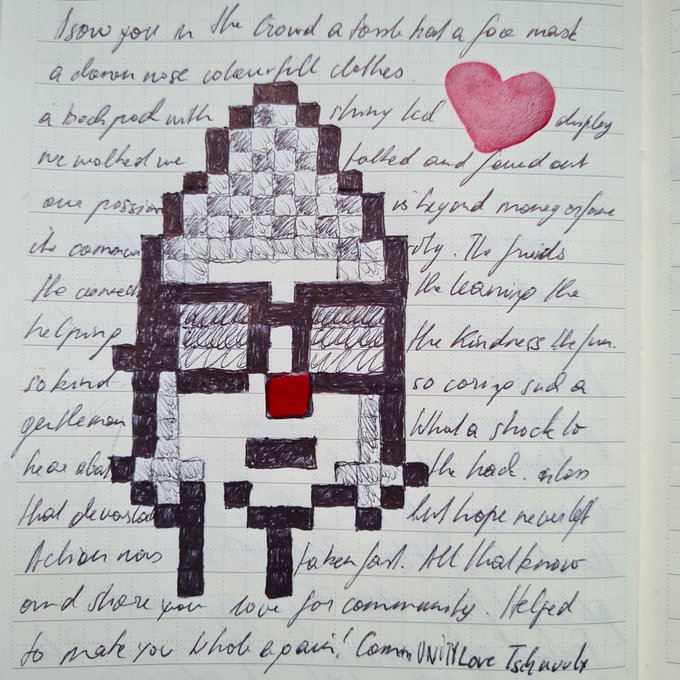 I saw you in the Crowd a tomb had a face mask
a clown nose colourfull clothes
a backpack with shiny led display
we walked we talked and found out
our passion is beyond money or fame
the the friends
the the learning the
helping the Kindness the fun.
so kind so caring such a
gentleman What a shock to
hear about the hack. a loss
that but hope never left
Action was taken fast. All that know
and share your love for community. Helped
to make you whole again! CommUNITYLove